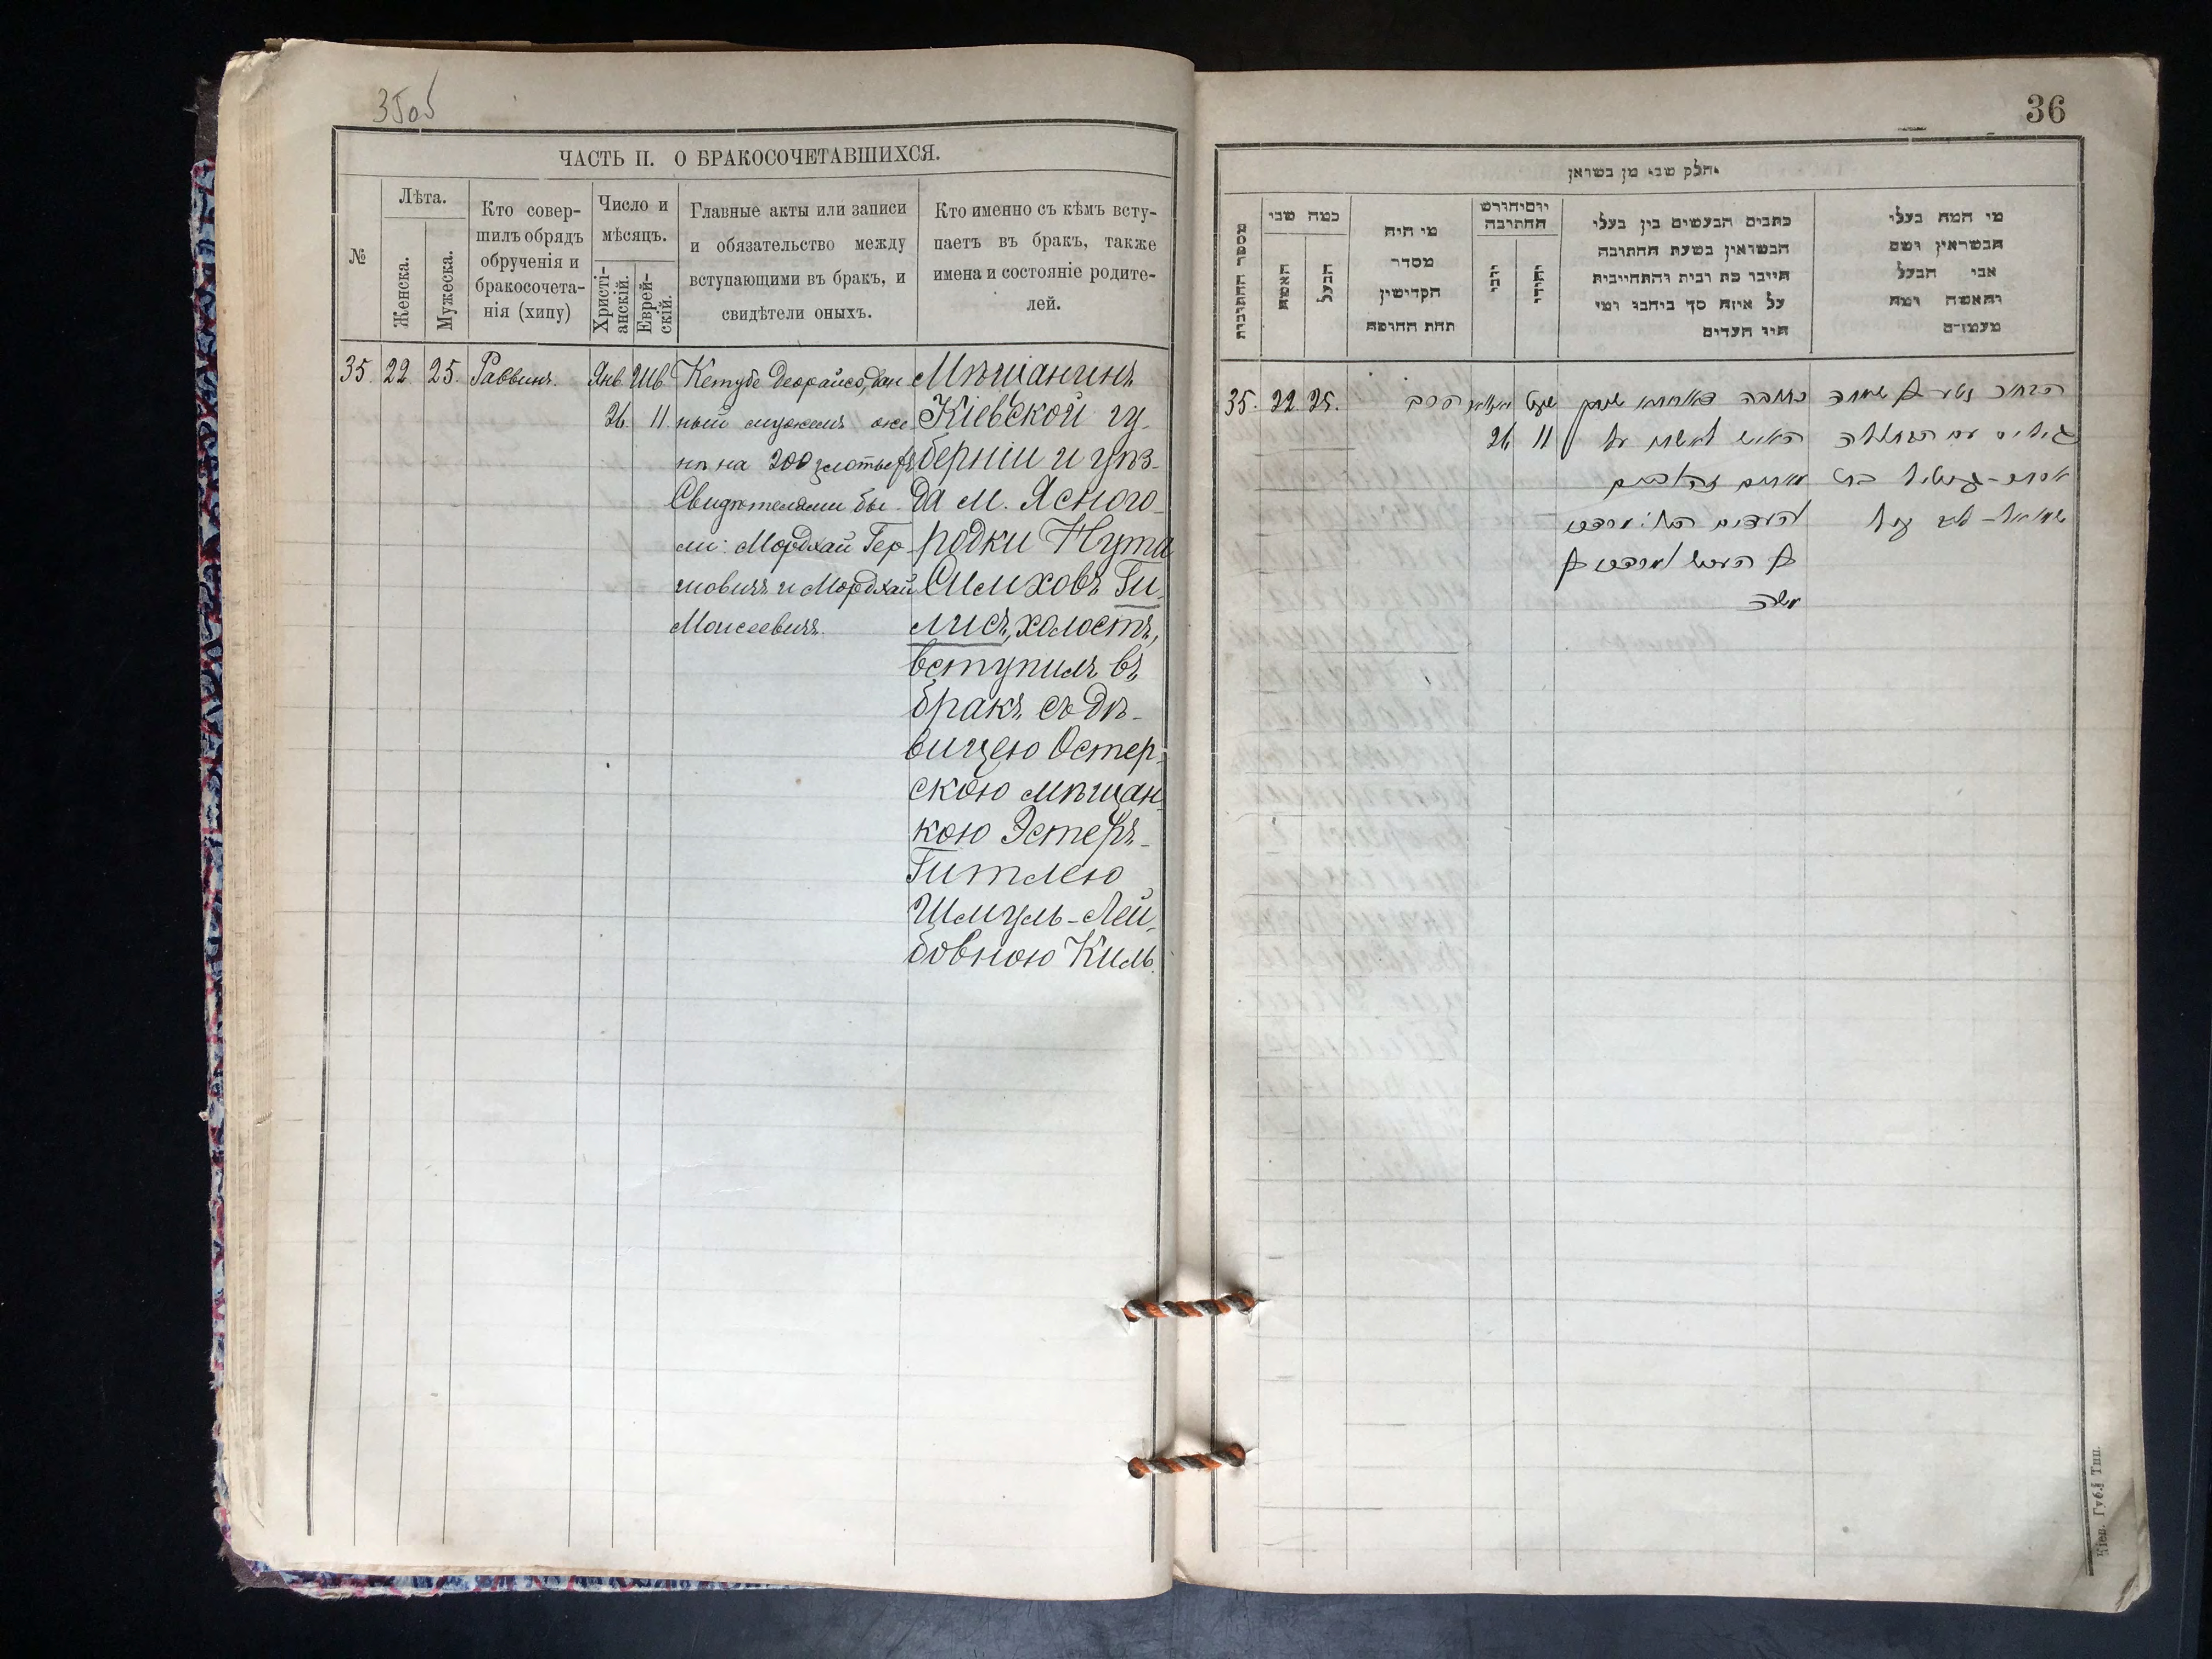 35об
ЧАСТЬ II. О БРАКОСОЧЕТАВШИХСЯ.
№
Лѣта.
Женска.
Мужеска.
Кто совер-
шилъ обрядъ
обрученія и
бракосочета-
нія (хипу)
Число и
мѣсяцъ.
Христі-
анскій.
Еврей-
скій.
Главные акты или записи
и обязательство между
вступающими въ бракъ, и
свидѣтели оныхъ.
Кто именно съ кѣмъ всту-
паетъ въ бракъ, также
имена и состояніе родите-
лей.
35. 22. 25. Раввинъ.
Янв. 26
Шв. 11
Кетубе деорайсо, дан
ный мужемъ же
нѣ на 200 злотыхъ
Свидѣтелями бы-
ли: Мордхай Гер-
шовичъ и Мордхай
Моисеевичъ.
Мѣщанинъ
Кіевской гу-
берніи и уѣз-
да м. Ясного-
родки Нута
Симховъ Ги-
лисъ, холостъ,
вступилъ въ
бракъ съ дѣ-
вицею Остер-
скою мѣщан-
кою Эстеръ-
Гитлею
Шмуль-Лей-
бовною Киль.
36
חלק שני מן נשואין
מספר החתונות
כמה שני
האשה
הבעל
מי היה
מסדר
הקדישין
תחת החופה
יום וחודש
החתונה
נוצרי
יהודי
כתבים הנעשים בין בעלי
הנשואין בשעת החתונה
על איזה סך נכתבו ומי
היו העדים
מי המה בעלי
הנשואין ושם
אבי הבעל
והאשה ומה
מעמדם
35. 22. 25.
הרב
26
שבט 11
כתובה דאורייתא
האיש לאשתו על
מאתים זהובים
והעדים
משה
הבחור
עם הבתולה
אסתר-גיטל בת
שמואל-ליב
Кіев. Губ. Тип.